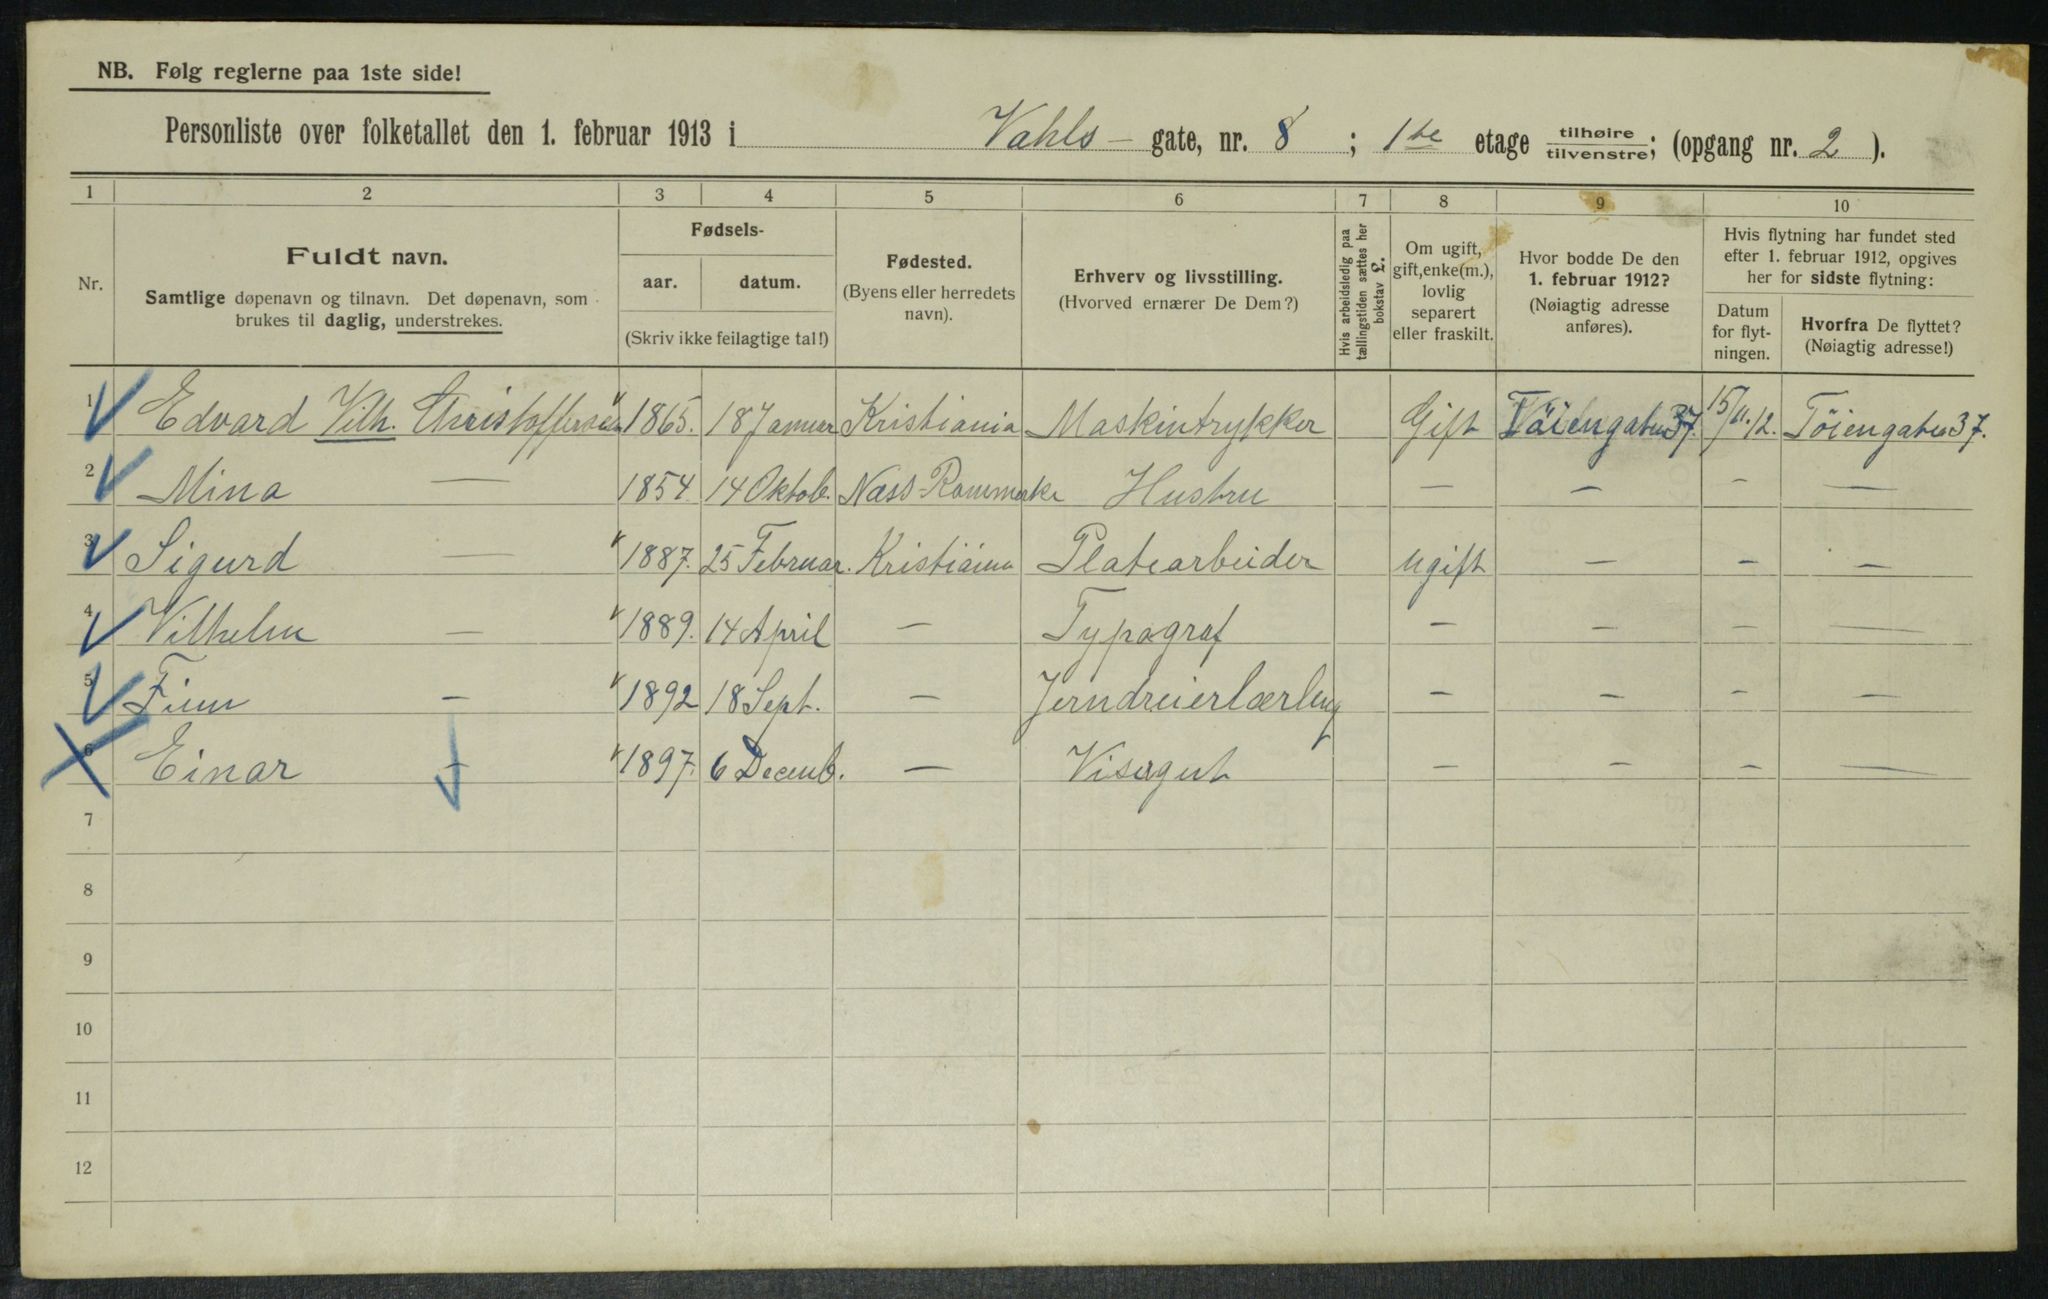 NB. Følg reglerne paa 1ste side!
Personliste over folketallet den 1. februar 1913 i Vahls — gate, nr. 8 ; 1ste etage tilhøire tilvenstre; (opgang nr. 2 ).
1 2 3 4 5 6 7 8 9 10
Nr.
Fuldt navn.
Samtlige døpenavn og tilnavn. Det døpenavn, som
brukes til daglig, understrekes.
Fødsels-
aar. datum.
(Skriv ikke feilagtige tal!)
Fødested.
(Byens eller herredets
navn).
Erhverv og livsstilling.
(Hvorved ernærer De Dem?)
Hvis arbeidsledig paa
tællingstiden sættes her
bokstav L.
Om ugift,
gift, enke(m.),
lovlig
separert
eller fraskilt.
Hvor bodde De den
1. februar 1912?
(Nøiagtig adresse
anføres).
Hvis flytning har fundet sted
efter 1. februar 1912, opgives
her for sidste flytning:
Datum
for flyt-
ningen.
Hvorfra De flyttet?
(Nøiagtig adresse!)
1 Edvard Vilh. Christoffersen 1865. 18 Januar Kristiania Maskintrykker Gift Töiengaten 37. 15/11.12. Töiengaten 37.
2 Mina — 1854. 14 Oktob. Næss Rommerike Hustru — — — —
3 Sigurd — 1887. 25 Februar. Kristiania Platearbeider ugift — — —
4 Vilhelm — 1889. 14 April — Typograf — — — —
5 Finn — 1892 18 Sept. — Jerndreierlærling — — — —
6 Einar — 1897. 6 Decemb. — Visergut — — — —
7
8
9
10
11
12